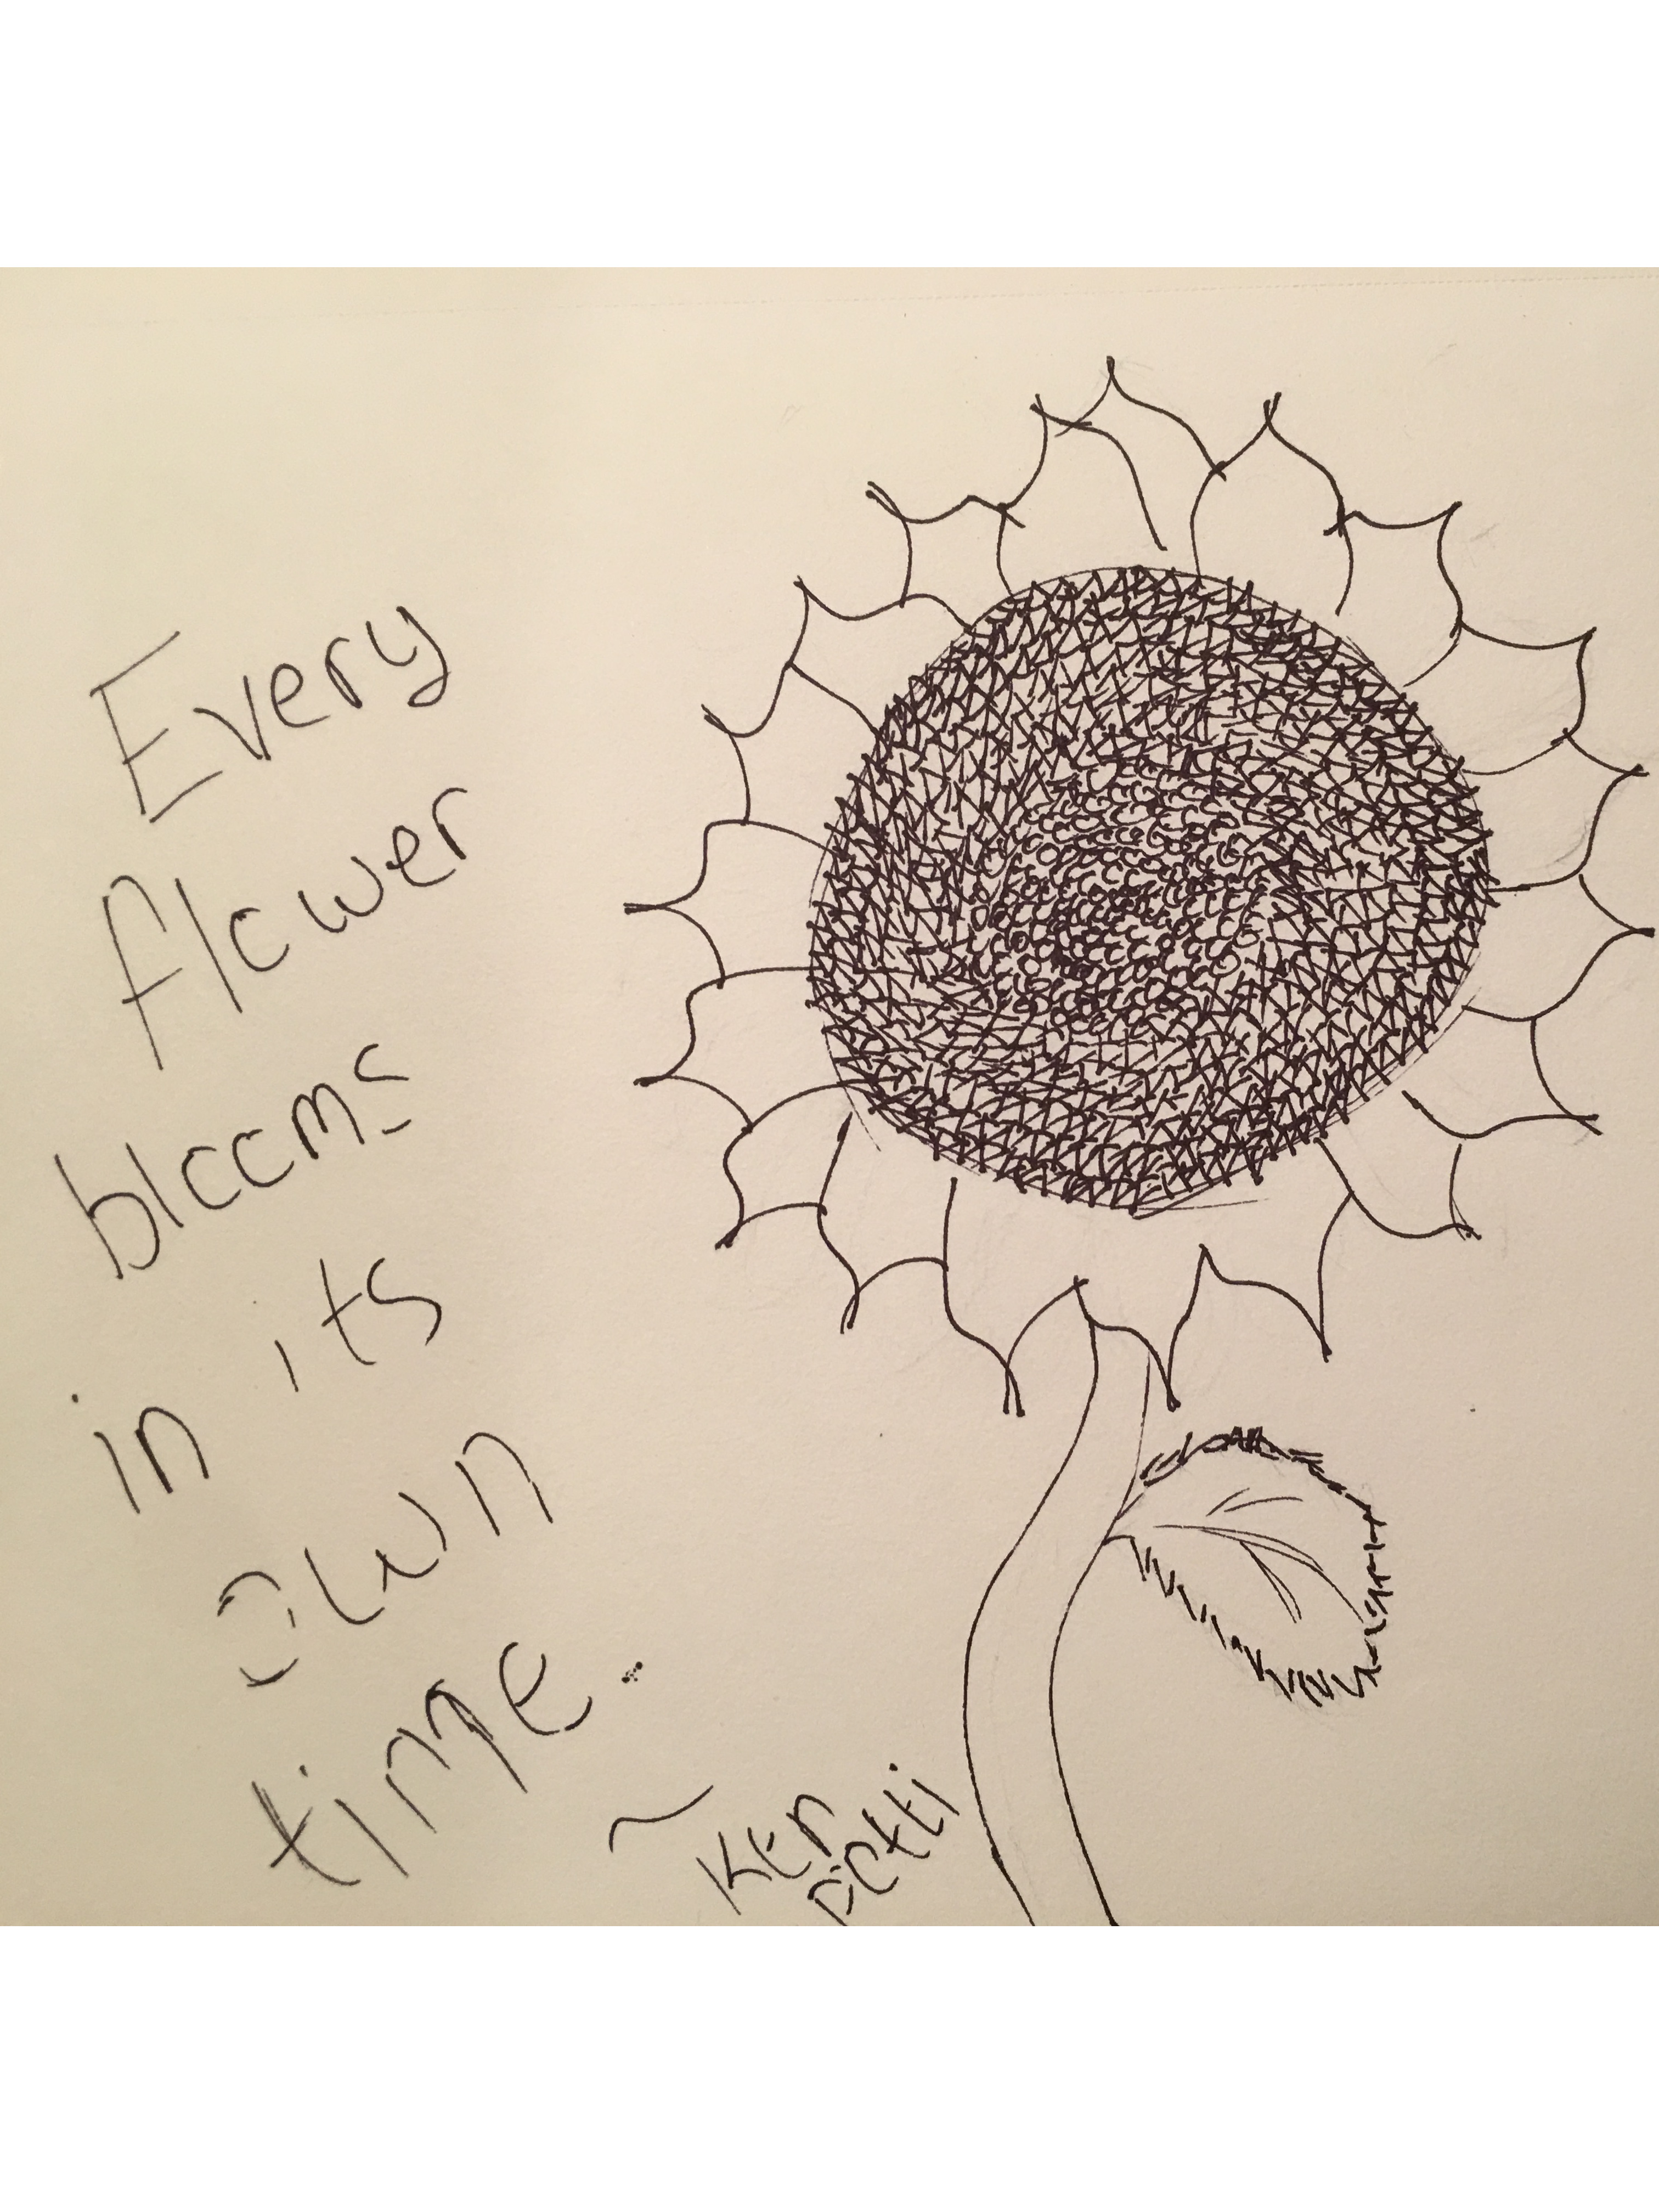 Every
flower
blooms
in its
own
time.
~ Ken
Petti